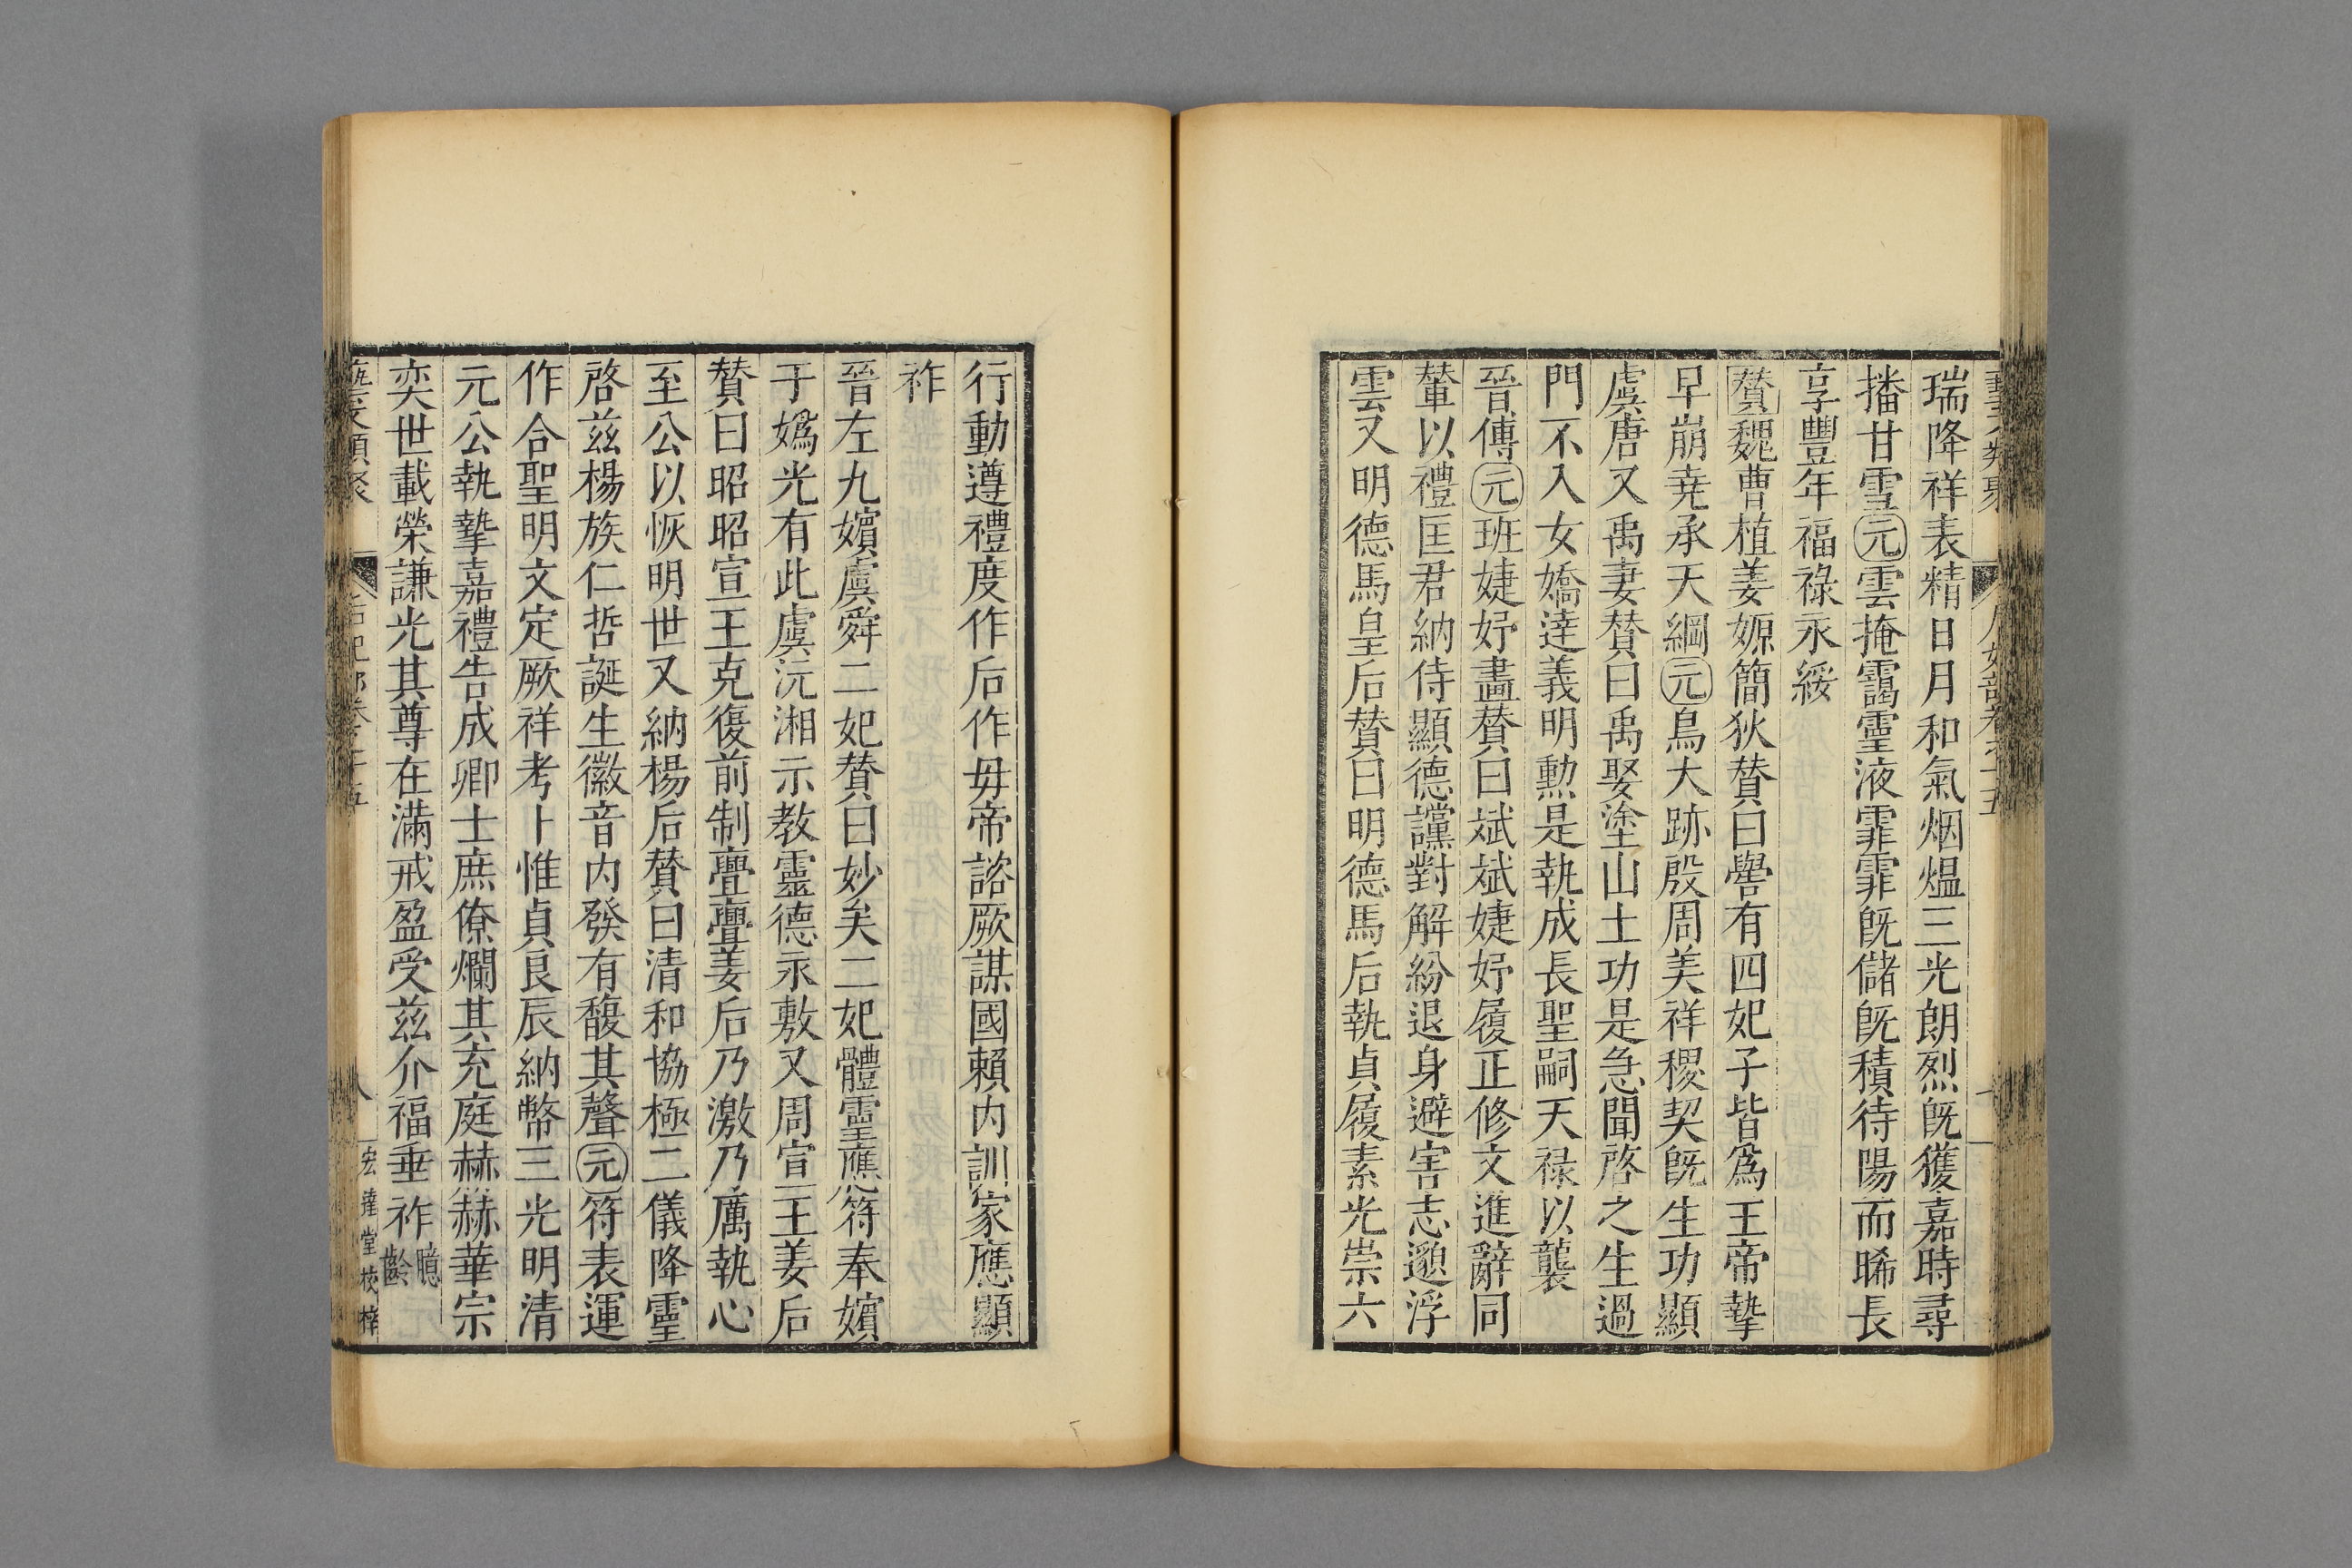 瑞降祥表精日月和氣烟熅三光朗烈旣獲嘉時尋
播甘雪元雲掩靄霊液霏霏旣儲旣積待陽而晞長
享豐年福祿永綏
賛魏曹植姜嫄簡狄賛曰嚳有四妃子皆爲王帝摯
早崩堯承天綱元鳥大跡殷周美祥稷契旣生功顯
虞唐又禹妻賛曰禹娶塗山土功是急聞啓之生過
門不入女嬌達義明勲是執成長聖嗣天祿以襲
晉傅元班婕妤畵賛曰斌斌婕妤履正修文進辭同
輦以禮匡君納侍顯德讜對解紛退身避害志邈浮
雲又明德馬皇后賛曰明德馬后執貞履素光崇六
行動遵禮度作后作毋帝諮厥謀國賴内訓家應顯
祚
晉左九嬪虞舜二妃賛曰妙矣二妃體霊應符奉嬪
于嬀光有此虞沅湘示教靈德永敷又周宣王姜后
賛曰昭昭宣王克復前制亹亹姜后乃激乃厲執心
至公以恢明世又納楊后賛曰清和協極二儀降霊
啓兹楊族仁哲誕生徽音内發有馥其聲元符表運
作合聖明文定厥祥考卜惟貞良辰納幣三光明清
元公執摯嘉禮告成卿士庶僚爛其充庭赫赫華宗
奕世載榮謙光其尊在滿戒盈受兹介福垂祚臆齡
宏達堂校梓